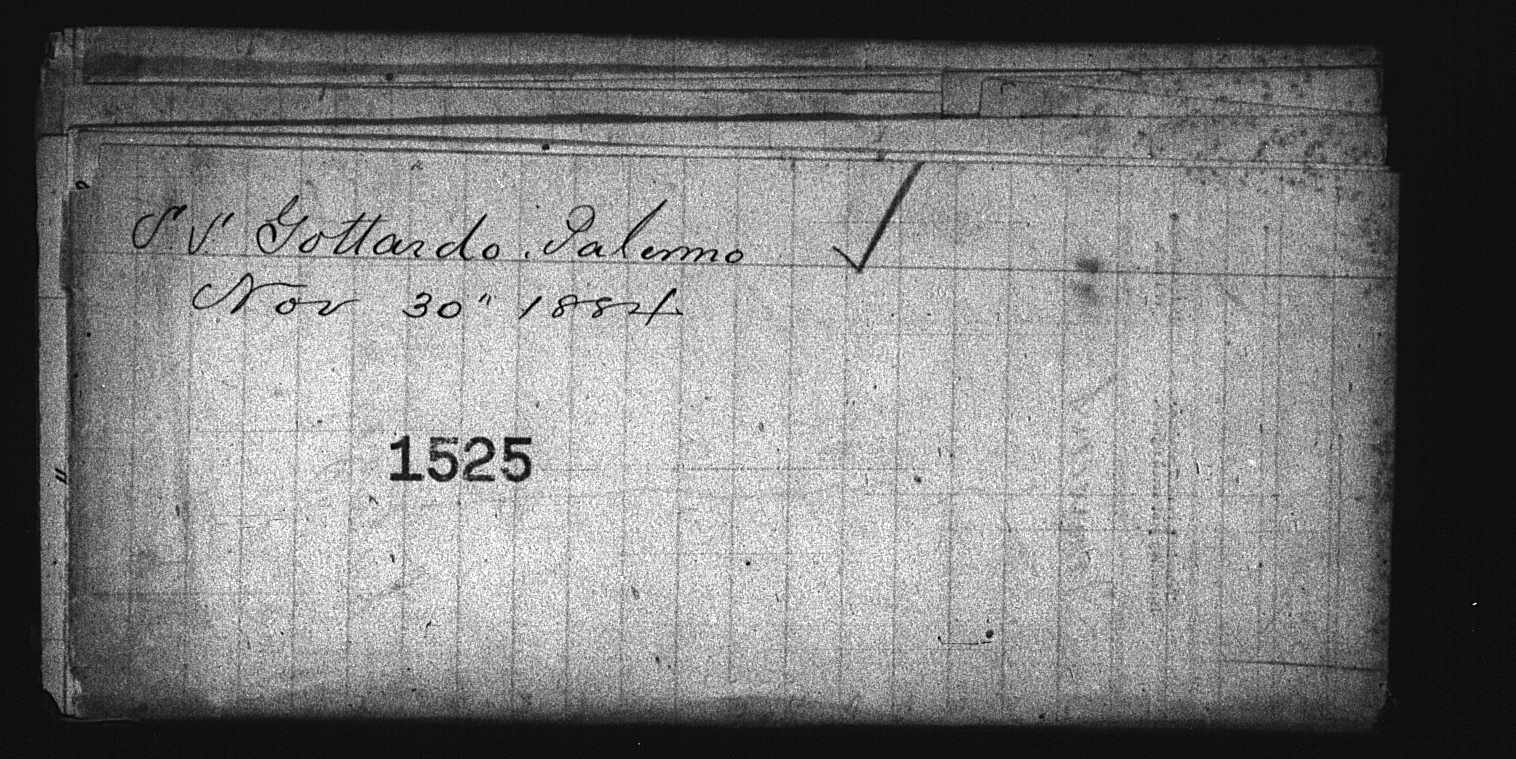 S.S. Gottardo. Palermo
Nov 30" 1884
1525